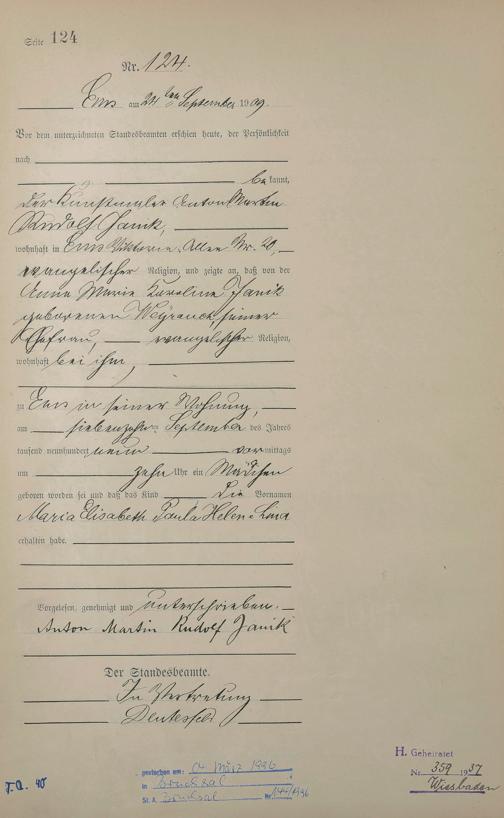 Seite 124
Nr. 124.
Ems am 24ten September 1909.
Vor dem unterzeichneten Standesbeamten erschien heute, der Persönlichkeit
nach
bekannt,
der Kunstmaler Anton Martin
Rudolf Janik,
wohnhaft in Ems Viktoria-Allee Nr. 20,
evangelischer Religion, und zeigte an, daß von der
Anna Marie Karoline Janik
geborenen seiner
Ehefrau, evangelischer Religion,
wohnhaft bei ihm,
zu Ems in seiner Wohnung,
am siebenzehn September des Jahres
tausend neunhundert neun vormittags
um zehn Uhr ein Mädchen
geboren worden sei und daß das Kind die Vornamen
Maria Elisabeth Paula Helene Lina
erhalten habe.
Vorgelesen, genehmigt und unterschrieben.
Anton Martin Rudolf Janik
Der Standesbeamte.
In Vertretung
gestorben am: März 1996
in Bruchsal
St. A. Bruchsal Nr. /1996
H. Geheiratet
Nr. 359 1937
Wiesbaden